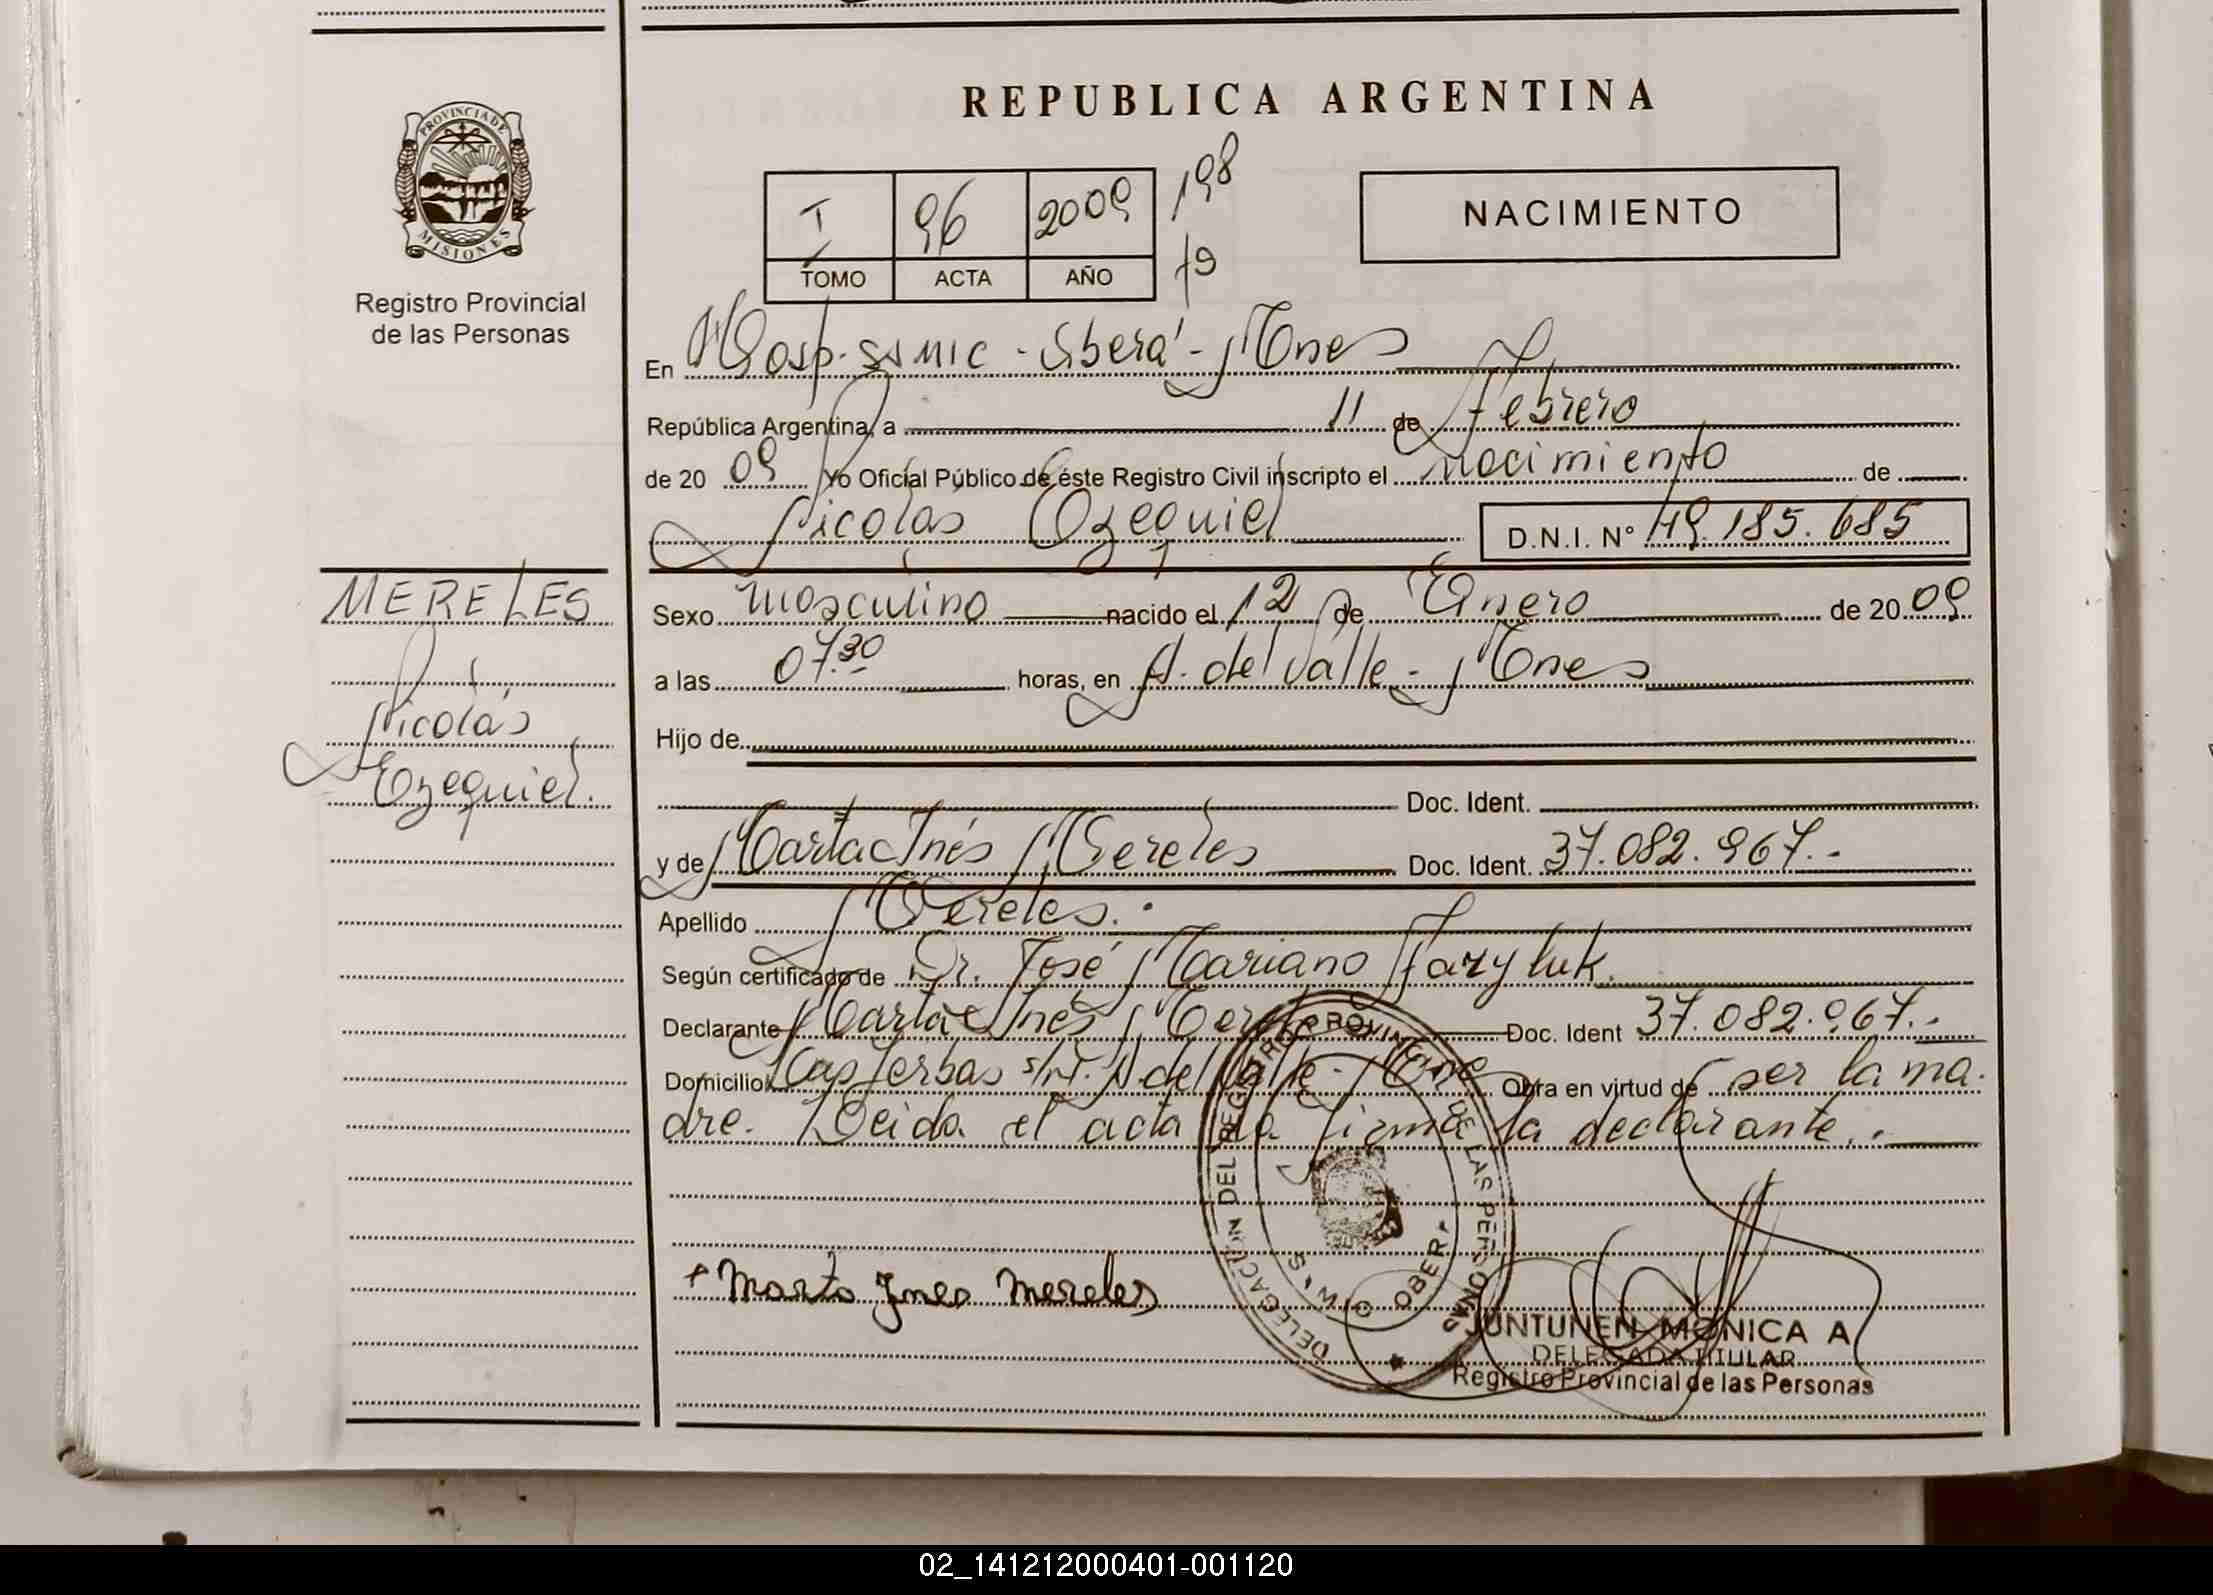 REPUBLICA ARGENTINA
PROVINCIA DE
MISIONES
Registro Provincial
de las Personas
I 96 2009 198
TOMO ACTA AÑO
NACIMIENTO
En Hosp. SAMIC - Oberá - Mnes
República Argentina, a 11 de Febrero
de 20 09 Yo Oficial Público de éste Registro Civil inscripto el nacimiento de
Nicolás Ezequiel D.N.I. N° 49.185.685
MERELES
Nicolás
Ezequiel.
Sexo masculino nacido el 12 de Enero de 20 09
a las 07.30 horas, en A. del Valle - Mnes
Hijo de
Doc. Ident.
y de Marta Inés Mereles Doc. Ident. 37.082.967.-
Apellido Mereles.-
Según certificado de Dr. José Mariano Fazyluk.
Declarante Marta Inés Mereles Doc. Ident 37.082.967.-
Domicilio Las Yerbas s/n. A. del Valle - Mnes Obra en virtud de ser la ma-
dre. Leida el acta la firma la declarante.-
+ Marta Ines Mereles
DELEGACION DEL REGISTRO PROVINCIAL DE LAS PERSONAS
OBERA
JUNTUNEN MONICA A
DELEGADA TITULAR
Registro Provincial de las Personas
02_141212000401-001120